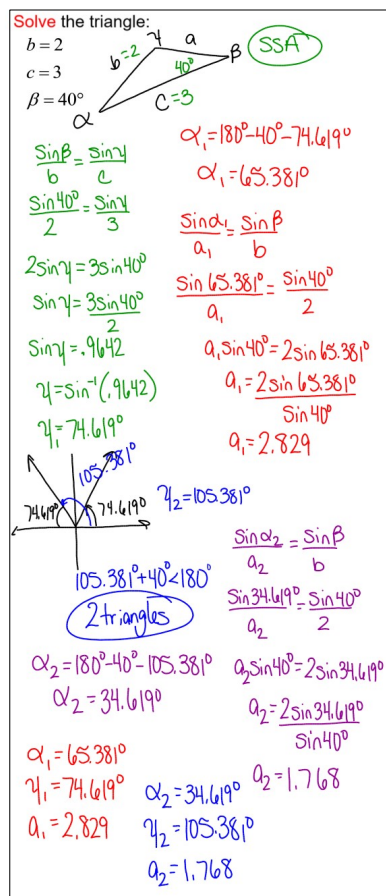 Solve the triangle:
b = 2
c = 3
β = 40°
γ
a
b=2
β
40°
α
C=3
SSA
sinβ/b = sinγ/c
sin40°/2 = sinγ/3
2sinγ=3sin40°
sinγ=3sin40°/2
sinγ=.9642
γ=sin⁻¹(.9642)
γ₁=74.619°
α₁=180°-40°-74.619°
α₁=65.381°
sinα₁/a₁ = sinβ/b
sin 65.381°/a₁ = sin40°/2
a₁sin40°=2sin65.381°
a₁=2sin65.381°/sin40°
a₁=2.829
105.381°
74.619°
74.619°
γ₂=105.381°
105.381°+40°<180°
2 triangles
α₂=180°-40°-105.381°
α₂=34.619°
sinα₂/a₂ = sinβ/b
sin34.619°/a₂ = sin40°/2
a₂sin40°=2sin34.619°
a₂=2sin34.619°/sin40°
a₂=1.768
α₁=65.381°
γ₁=74.619°
a₁=2.829
α₂=34.619°
γ₂=105.381°
a₂=1.768